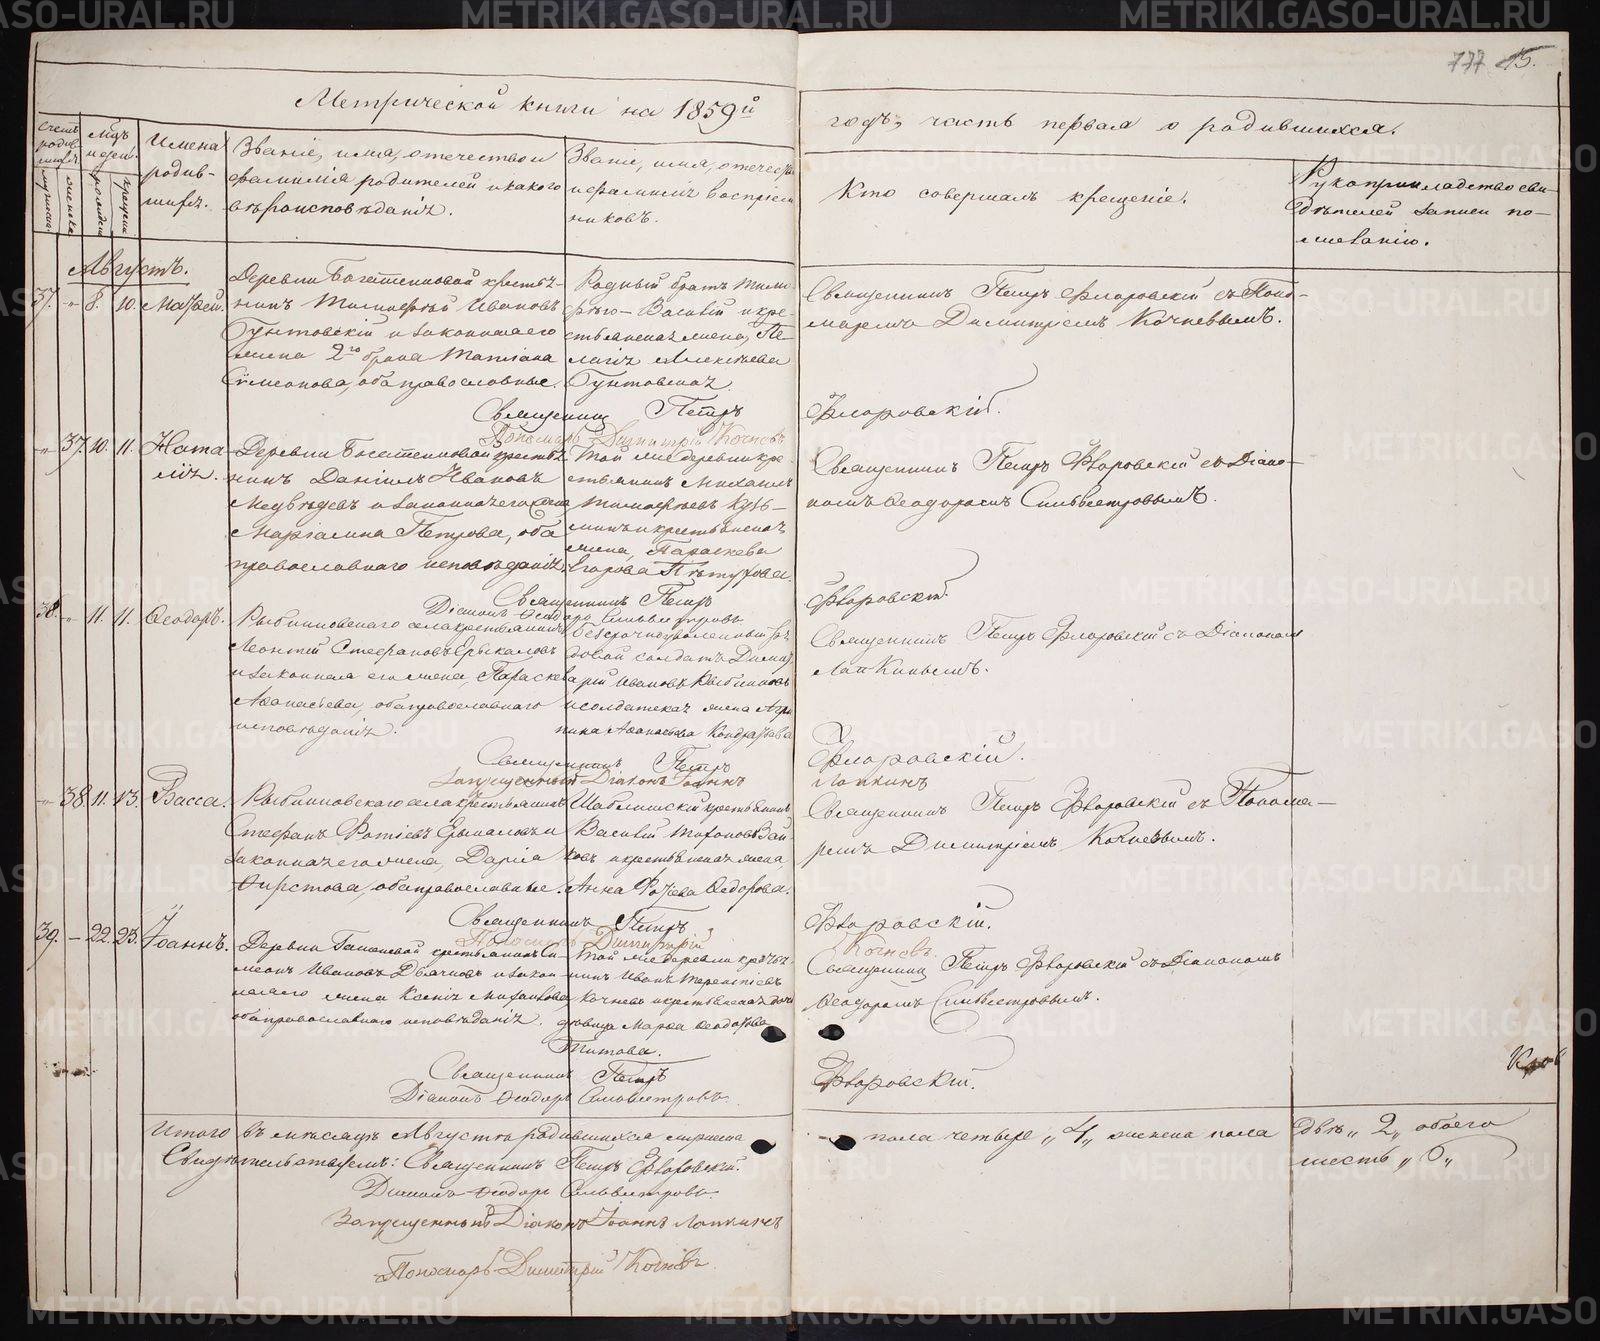 777 15.
Метрической книги на 1859й
годъ, часть первая о родившихся.
Счетъ родив-шихся.
мужеска.
женска.
Мѣсяцъ и день.
рожденія
крещенія
Имена родив-шихся.
Званіе, имя, отечество и
фамилія родителей и какого
вѣроисповѣданія.
Званіе, имя, отечество
и фамилія воспріем-
никовъ.
Кто совершалъ крещеніе.
Рукоприкладство сви-
дѣтелей записи по-
желанію.
Августъ.
37. " 8. 10. Матѳей.
Деревни Богатенковой крестья-
нинъ Тимоѳей Ивановъ
Гунтовскій и законная его
жена 2го брака Татіана
Сѵмеонова, оба православные.
Родный братъ Тимо-
ѳею - Василій и кре-
стьянская жена, Пе-
лагія Алексѣева
Гунтовская
Священникъ Петръ Флоровскій съ Поно-
маремъ Димитріемъ Кочневымъ.
Священникъ Петръ Флоровскій.
Пономарь Димитрій Кочневъ
" 37. 10. 11. Ната-
лія.
Деревни Богатенковой крестья-
нинъ Даніилъ Ивановъ
Медвѣдевъ и законная его жена
Маріамна Петрова, оба
православнаго исповѣданія.
Той же деревни кре-
стьянинъ Михаилъ
Тимоѳеевъ Кузь-
минъ и крестьянская
жена, Параскева
Егорова Пѣтухова.
Священникъ Петръ Флоровскій съ Діако-
номъ Ѳеодоромъ Сильвестровымъ.
Священникъ Петръ Флоровскій.
Діаконъ Ѳеодоръ Сильвестровъ
38. " 11. 11. Ѳеодоръ.
Рыбниковскаго села крестьянинъ
Леонтій Стефановъ Ерыкаловъ
и законная его жена, Параскева
Аѳанасіева, оба православнаго
исповѣданія.
Безсрочноотпускный ря-
довой солдатъ Димит-
рій Ивановъ Рыбниковъ
и солдатская жена Агри-
пина Аѳанасьева Кондрашова
Священникъ Петръ Флоровскій съ Діакономъ
Лапкинымъ.
Священникъ Петръ Флоровскій.
Запрещенный Діаконъ Іоаннъ Лапкинъ
" 38. 11. 13. Васса.
Рыбниковскаго села крестьянинъ
Стефанъ Фотіевъ Ерыкаловъ и
законная его жена, Дарія
Ѳирстова, оба православные.
Шаблишскій крестьянинъ
Василій Тихоновъ Зай-
ковъ и крестьянская жена,
Анна Фотіева Ѳедорова.
Священникъ Петръ Флоровскій съ Понома-
ремъ Димитріемъ Кочневымъ.
Священникъ Петръ Флоровскій.
Пономарь Димитрій Кочневъ.
39. - 22. 23. Іоаннъ.
Деревни Гашеневой крестьянинъ Си-
меонъ Ивановъ Дьячковъ и закон-
ная его жена Ксенія Михайлова,
оба православнаго исповѣданія.
Той же деревни крестья-
нинъ Иванъ Терентіевъ
Кочневъ и крестьянская дочь
дѣвица Марѳа Ѳеодорова
Титова.
Священникъ Петръ Флоровскій съ Діакономъ
Ѳеодоромъ Сильвестровымъ.
Священникъ Петръ Флоровскій.
Діаконъ Ѳеодоръ Сильвестровъ.
Итого въ мѣсяцѣ Августѣ родившихся мужеска пола четыре „4„ женска пола двѣ „2„ обоего
шесть „6„
Свидѣтельствуемъ: Священникъ Петръ Флоровскій.
Діаконъ Ѳеодоръ Сильвестровъ.
Запрещенный Діаконъ Іоаннъ Лапкинъ
Пономарь Димитрій Кочневъ
METRIKI.GASO-URAL.RU